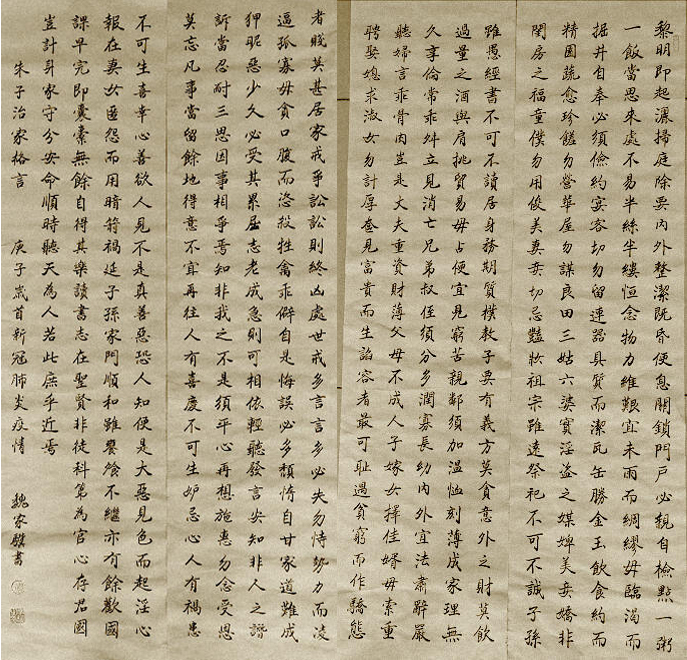 黎明即起灑掃庭除要內外整潔既昏便息關鎖門戶必親自檢點一粥
一飯當思來處不易半絲半縷恒念物力維艱宜未雨而綢繆毋臨渴而
掘井自奉必須儉約宴客切勿留連器具質而潔瓦缶勝金玉飲食約而
精園蔬愈珍饈勿營華屋勿謀良田三姑六婆實淫盜之媒婢美妾嬌非
閨房之福童僕勿用俊美妻妾切忌豔妝祖宗雖遠祭祀不可不誠子孫
雖愚經書不可不讀居身務期質樸教子要有義方莫貪意外之財莫飲
過量之酒與肩挑貿易毋占便宜見窮苦親鄰須加溫恤刻薄成家理無
久享倫常乖舛立見消亡兄弟叔侄須分多潤寡長幼內外宜法肅辭嚴
聽婦言乖骨肉豈是丈夫重資財薄父母不成人子嫁女擇佳婿毋索重
聘娶媳求淑女勿計厚奩見富貴而生諂容者最可恥遇貧窮而作驕態
者賤莫甚居家戒爭訟訟則終凶處世戒多言言多必失勿恃勢力而凌
逼孤寡毋貪口腹而恣殺牲禽乖僻自是悔誤必多頹惰自甘家道難成
狎昵惡少久必受其累屈志老成急則可相依輕聽發言安知非人之譖
訴當忍耐三思因事相爭焉知非我之不是須平心再想施惠勿念受恩
莫忘凡事當留餘地得意不宜再往人有喜慶不可生妒忌心人有禍患
不可生喜幸心善欲人見不是真善惡恐人知便是大惡見色而起淫心
報在妻女匿怨而用暗箭禍延子孫家門順和雖饔飧不繼亦有餘歡國
課早完即囊橐無餘自得其樂讀書志在聖賢非徒科第為官心存君國
豈計身家守分安命順時聽天為人若此庶乎近焉
朱子治家格言 庚子歲首新冠肺炎疫情 魏家駿書